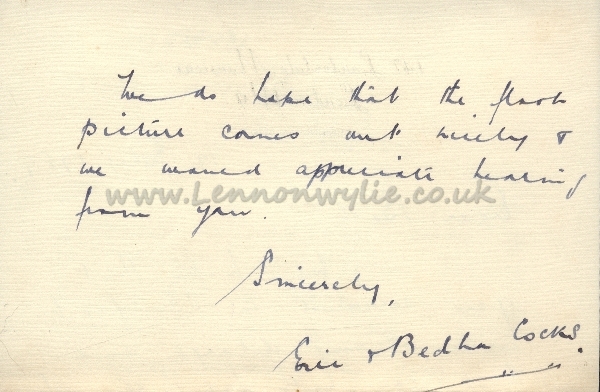 We do hope that the flash
picture comes out nicely &
we would appreciate hearing
from you.
www.Lennonwylie.co.uk
Sincerely,
Eric & Bedha Cocks.